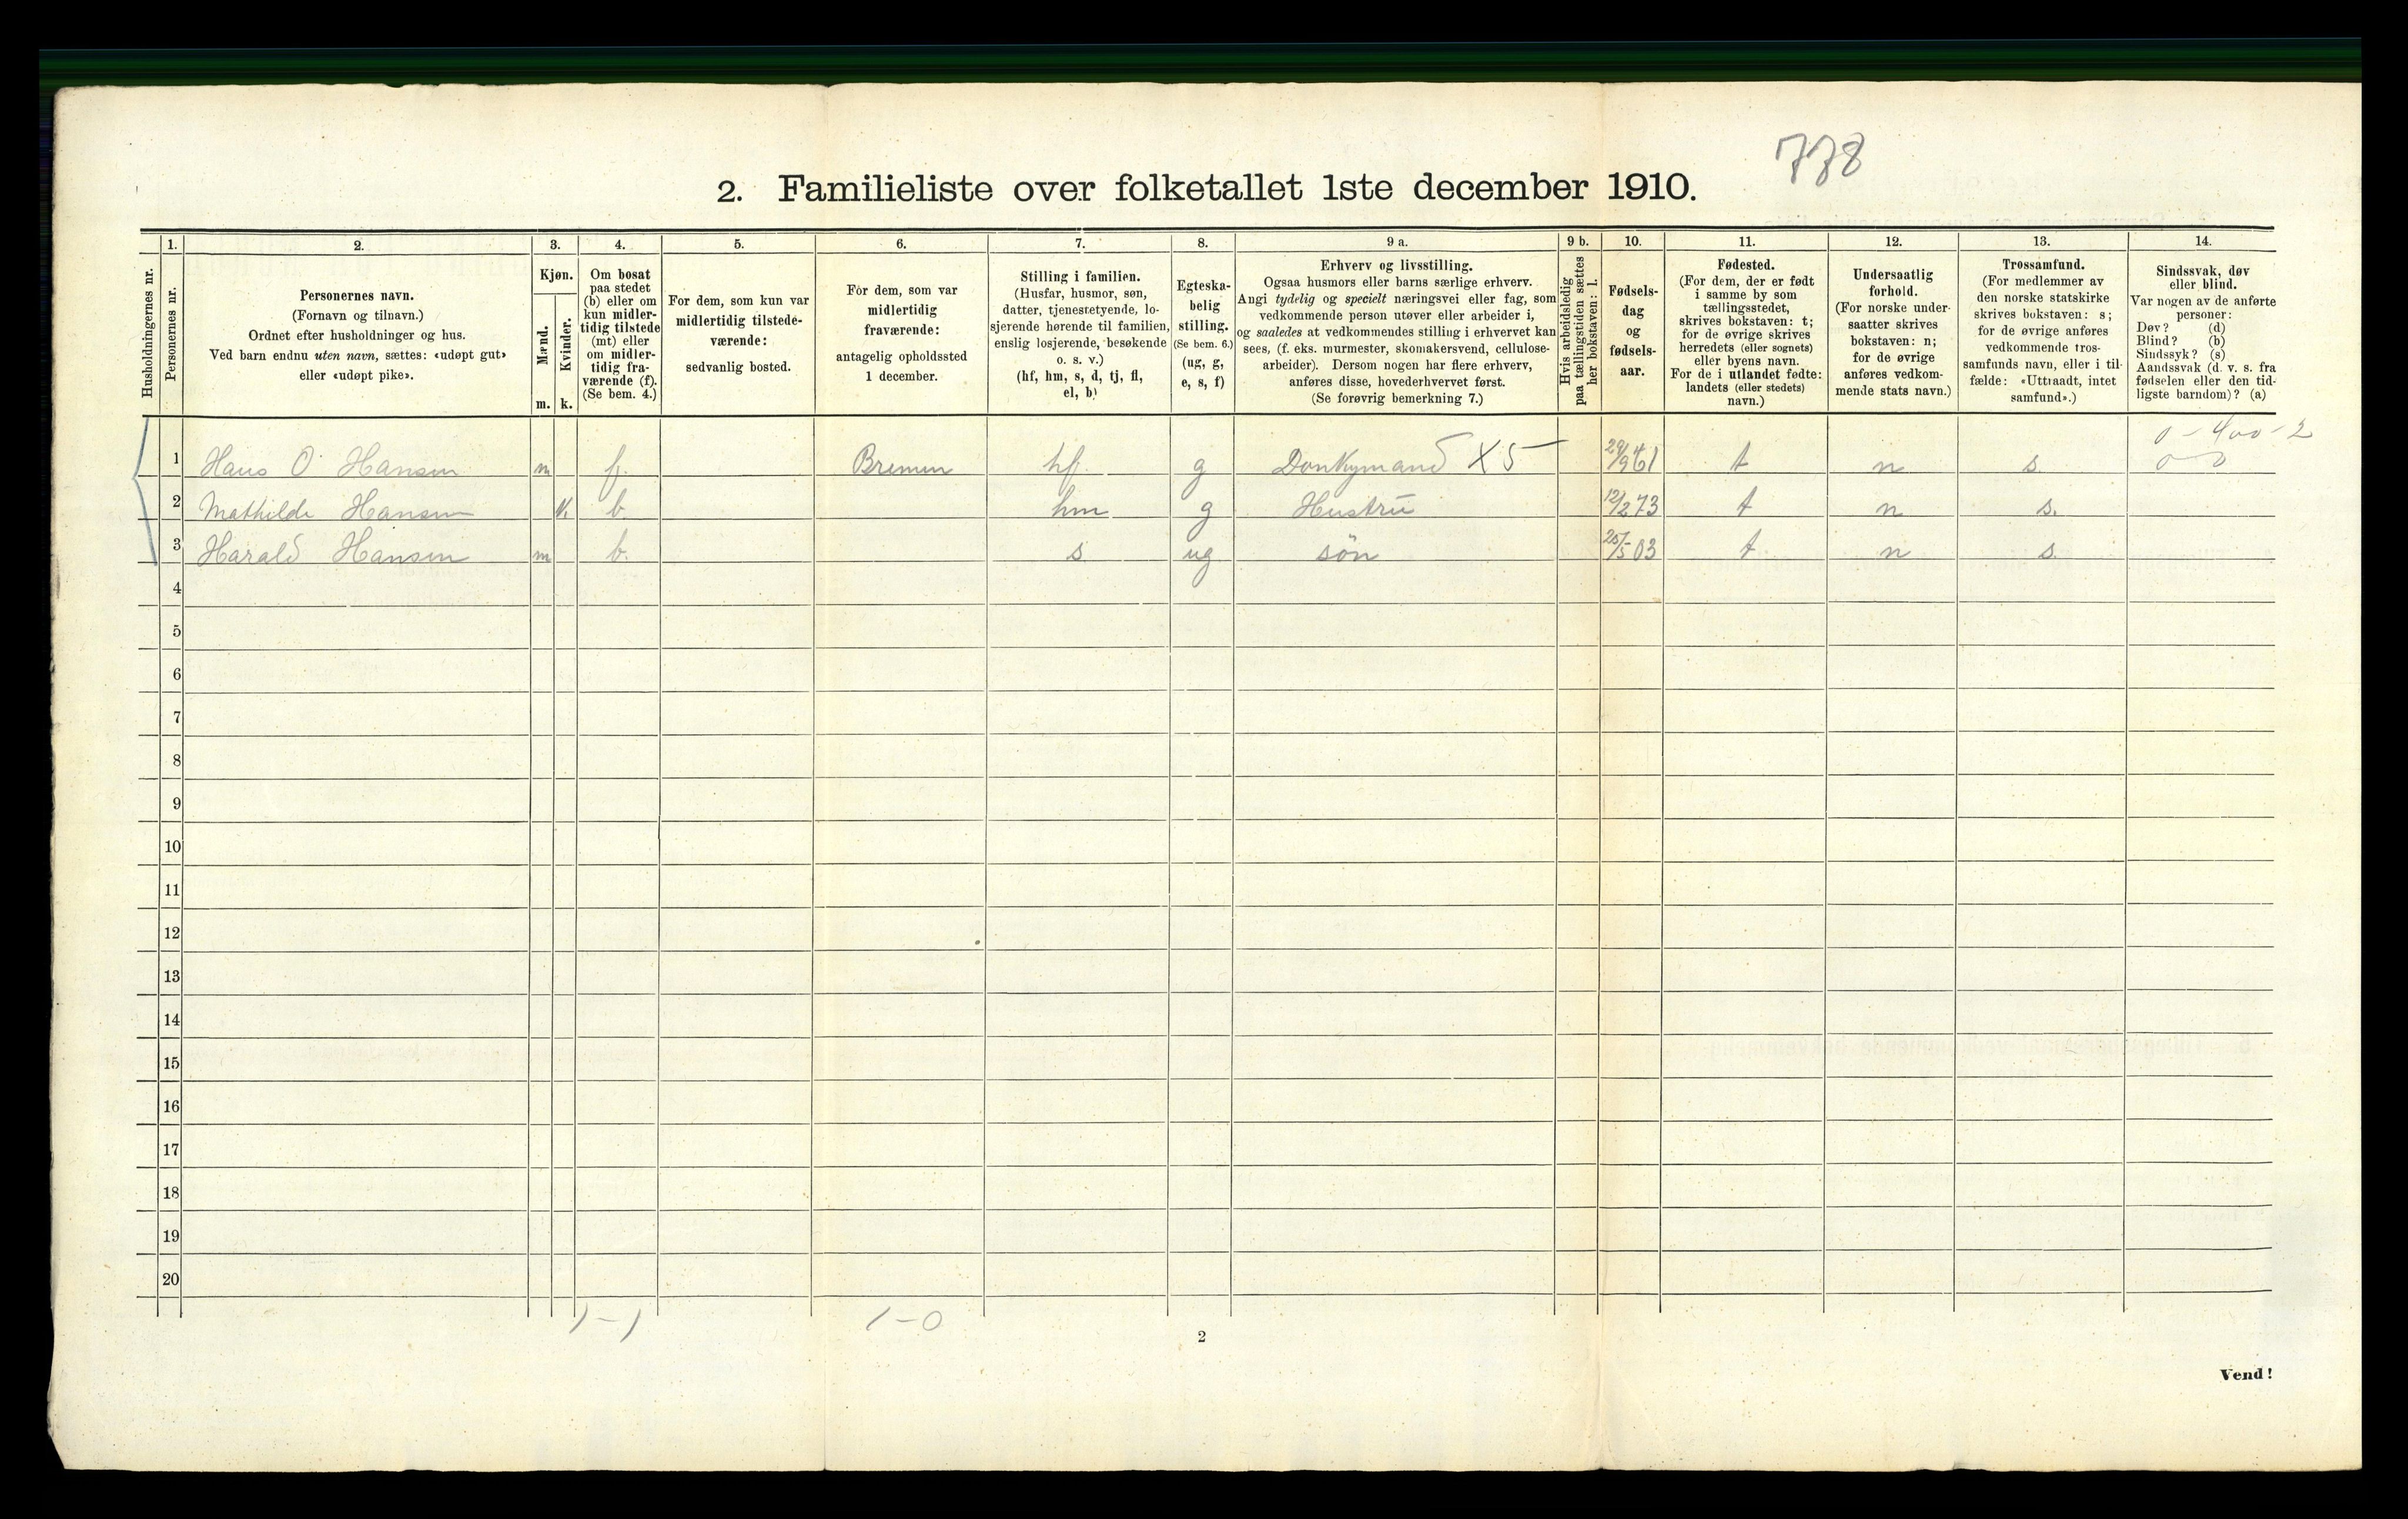 778
2. Familieliste over folketallet 1ste december 1910.
Husholdningernes nr.
1.
Personernes nr.
2.
Personernes navn.
(Fornavn og tilnavn.)
Ordnet efter husholdninger og hus.
Ved barn endnu uten navn, sættes: «udøpt gut»
eller «udøpt pike».
3.
Kjøn.
Mænd.
Kvinder.
m. k.
4.
Om bosat
paa stedet
(b) eller om
kun midler-
tidig tilstede
(mt) eller
om midler-
tidig fra-
værende (f).
(Se bem. 4.)
5.
For dem, som kun var
midlertidig tilstede-
værende:
sedvanlig bosted.
6.
For dem, som var
midlertidig
fraværende:
antagelig opholdssted
1 december.
7.
Stilling i familien.
(Husfar, husmor, søn,
datter, tjenestetyende, lo-
sjerende hørende til familien,
enslig losjerende, besøkende
o. s. v.)
(hf, hm, s, d, tj, fl,
el, b)
8.
Egteska-
belig
stilling.
(Se bem. 6.)
(ug, g,
e, s, f)
9 a.
Erhverv og livsstilling.
Ogsaa husmors eller barns særlige erhverv.
Angi tydelig og specielt næringsvei eller fag, som
vedkommende person utøver eller arbeider i,
og saaledes at vedkommendes stilling i erhvervet kan
sees, (f. eks. murmester, skomakersvend, cellulose-
arbeider). Dersom nogen har flere erhverv,
anføres disse, hovederhvervet først.
(Se forøvrig bemerkning 7.)
9 b.
Hvis arbeidsledig
paa tællingstiden sættes
her bokstaven: l.
10.
Fødsels-
dag
og
fødsels-
aar.
11.
Fødested.
(For dem, der er født
i samme by som
tællingsstedet,
skrives bokstaven: t;
for de øvrige skrives
herredets (eller sognets)
eller byens navn.
For de i utlandet fødte:
landets (eller stedets)
navn.)
12.
Undersaatlig
forhold.
(For norske under-
saatter skrives
bokstaven: n;
for de øvrige
anføres vedkom-
mende stats navn.)
13.
Trossamfund.
(For medlemmer av
den norske statskirke
skrives bokstaven: s;
for de øvrige anføres
vedkommende tros-
samfunds navn, eller i til-
fælde: «Uttraadt, intet
samfund».)
14.
Sindssvak, døv
eller blind.
Var nogen av de anførte
personer:
Døv? (d)
Blind? (b)
Sindssyk? (s)
Aandssvak (d. v. s. fra
fødselen eller den tid-
ligste barndom)? (a)
0 - 400 - 2
1 Hans O Hansen m f. Bremen hf. g Donkymand X 5 29/9 61 t n s. 0 - 0
2 Mathilde Hansen k. b. hm g Hustru 12/2 73 t n s.
3 Harald Hansen m b. s ug søn 25/5 03 t n s.
4
5
6
7
8
9
10
11
12
13
14
15
16
17
18
19
20
1-1 1-0
2
Vend!